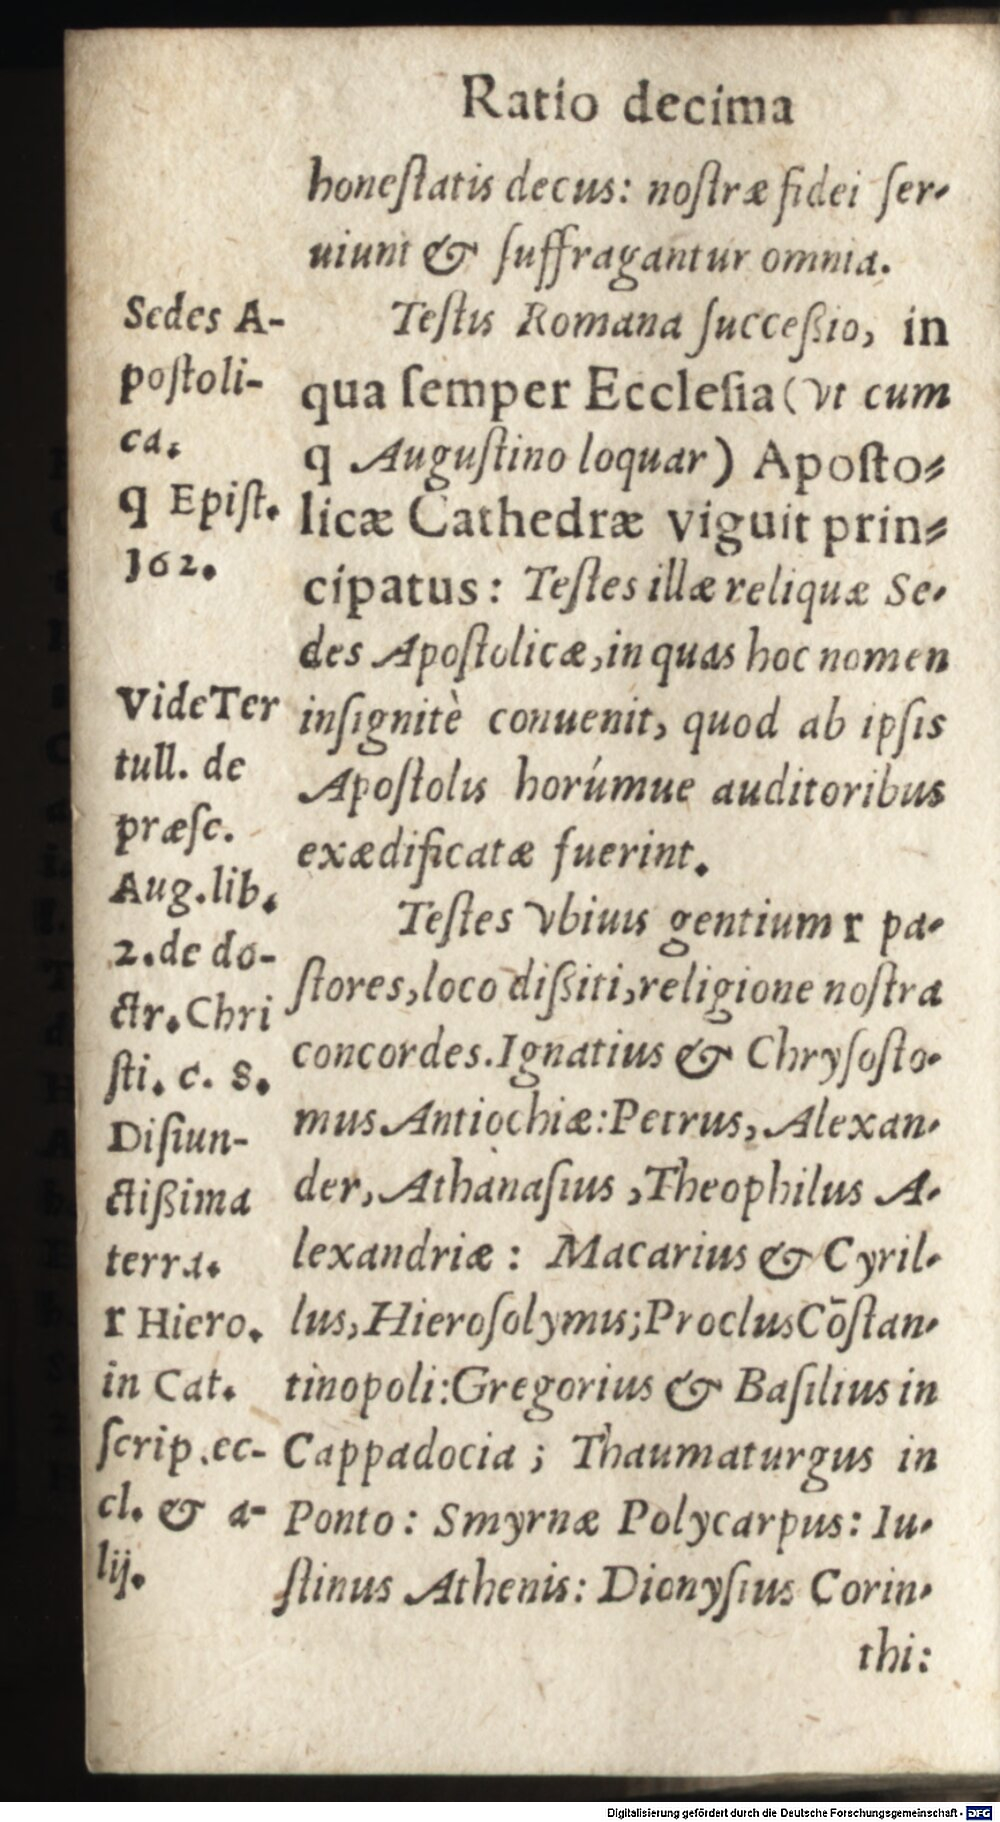 Ratio decima
honeſtatis decus: noſtræ fidei ſer-
uiunt & ſuffragantur omnia.
Teſtis Romana ſucceßio, in
qua ſemper Eccleſia (vt cum
q Auguſtino loquar) Apoſto-
licæ Cathedræ viguit prin-
cipatus: Teſtes illæ reliquæ Se-
des Apoſtolicæ, in quas hoc nomen
inſignitè conuenit, quod ab ipſis
Apoſtolis horúmue auditoribus
exædificatæ fuerint.
Teſtes vbiuis gentium r pa-
ſtores, loco dißiti, religione noſtra
concordes. Ignatius & Chryſoſto-
mus Antiochiæ: Petrus, Alexan-
der, Athanaſius, Theophilus A-
lexandriæ: Macarius & Cyril-
lus, Hieroſolymis; Proclus Cōſtan-
tinopoli: Gregorius & Baſilius in
Cappadocia; Thaumaturgus in
Ponto: Smyrnæ Polycarpus: Iu-
ſtinus Athenis: Dionyſius Corin-
thi:
Sedes A-
poſtoli-
ca.
q Epiſt.
162.
Vide Ter
tull. de
præſc.
Aug. lib.
2. de do-
ctr. Chri
ſti. c. 8.
Diſiun-
ctißima
terra.
r Hiero.
in Cat.
ſcrip. ec-
cl. & a-
lij.
Digitalisierung gefördert durch die Deutsche Forschungsgemeinschaft - DFG